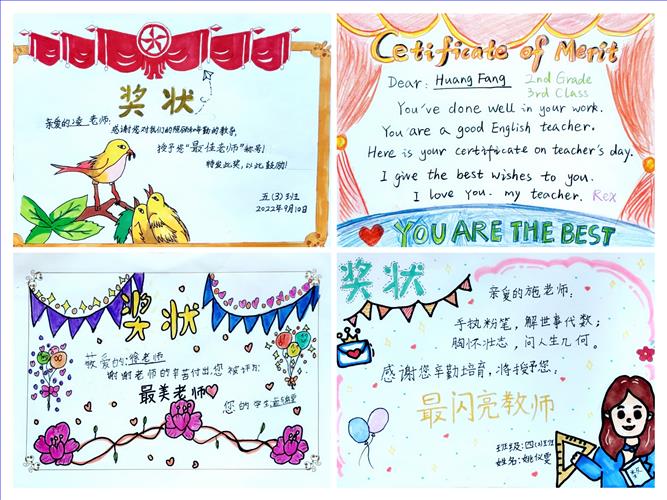 奖状
亲爱的凌老师:
感谢您对我们的
授予您"最佳老师"称号!
特发此奖,以此鼓励!
五(3)班
2022年9月10日
Cetificate of Merit
Dear: Huang Fang
2nd Grade
3rd Class
You've done well in your work.
You are a good English teacher.
Here is your certificate on teacher's day.
I give the best wishes to you.
I love you. my teacher. Rex
YOU ARE THE BEST
奖状
敬爱的:徐老师
谢谢老师的辛苦付出,您被评为
最美老师
您的学生
奖状
亲爱的施老师:
手执粉笔,解世事代数;
胸怀壮志,问人生几何。
感谢您辛勤培育,将授予您:
最闪亮教师
班级:四
姓名:姚仪雯